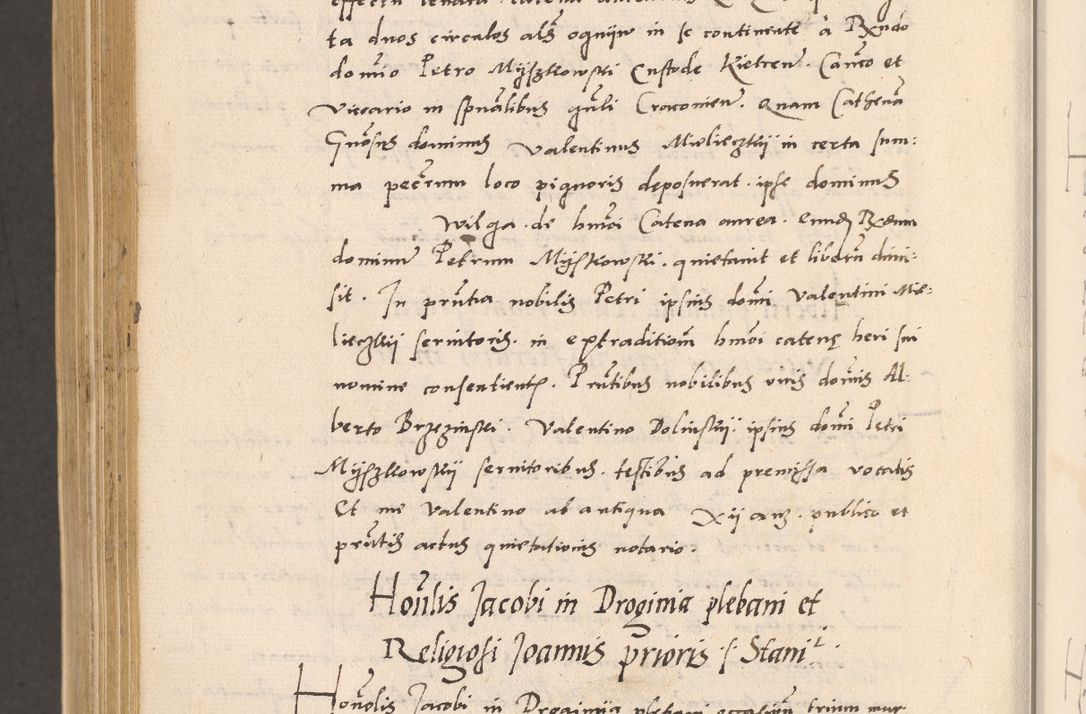 ta duos circulos als ogniw in se continente a Rxndo
domino Petro Mijszkowski Custode Kielcen. Canco et
vicario in spualibus gnli Cracovien. Quam Cathenā
Gnosus dominus Valentinus Mieliczskij in certa sum:
ma peccrum loco pignoris deposuerat. ipse dominus
Wilga de hmoi Catena aurea. eundq Rxdum
dominu Petrum Mijskowski. quietavit et liberu dimi:
sit. In prntia nobilis Petri ipsius domi Valentini Mie:
liczskij servitoris. in extraditiom hmoi catenę heri sui
nomine consentients. Prntibus nobilibus viris domis Al:
berto Brzezinski. Valentino Dolinskij. ipsius domi Petri
Mijszkowskij servitoribus. testibus ad premissa vocatis
Et me Valentino ab antiqua publico et
prntis actus quietationis notario.
Honlis Jacobi in Droginia plebani et
Religiosi Joannis prioris S. Stani
Honolis Jacobi in Droginija plebani trium mar